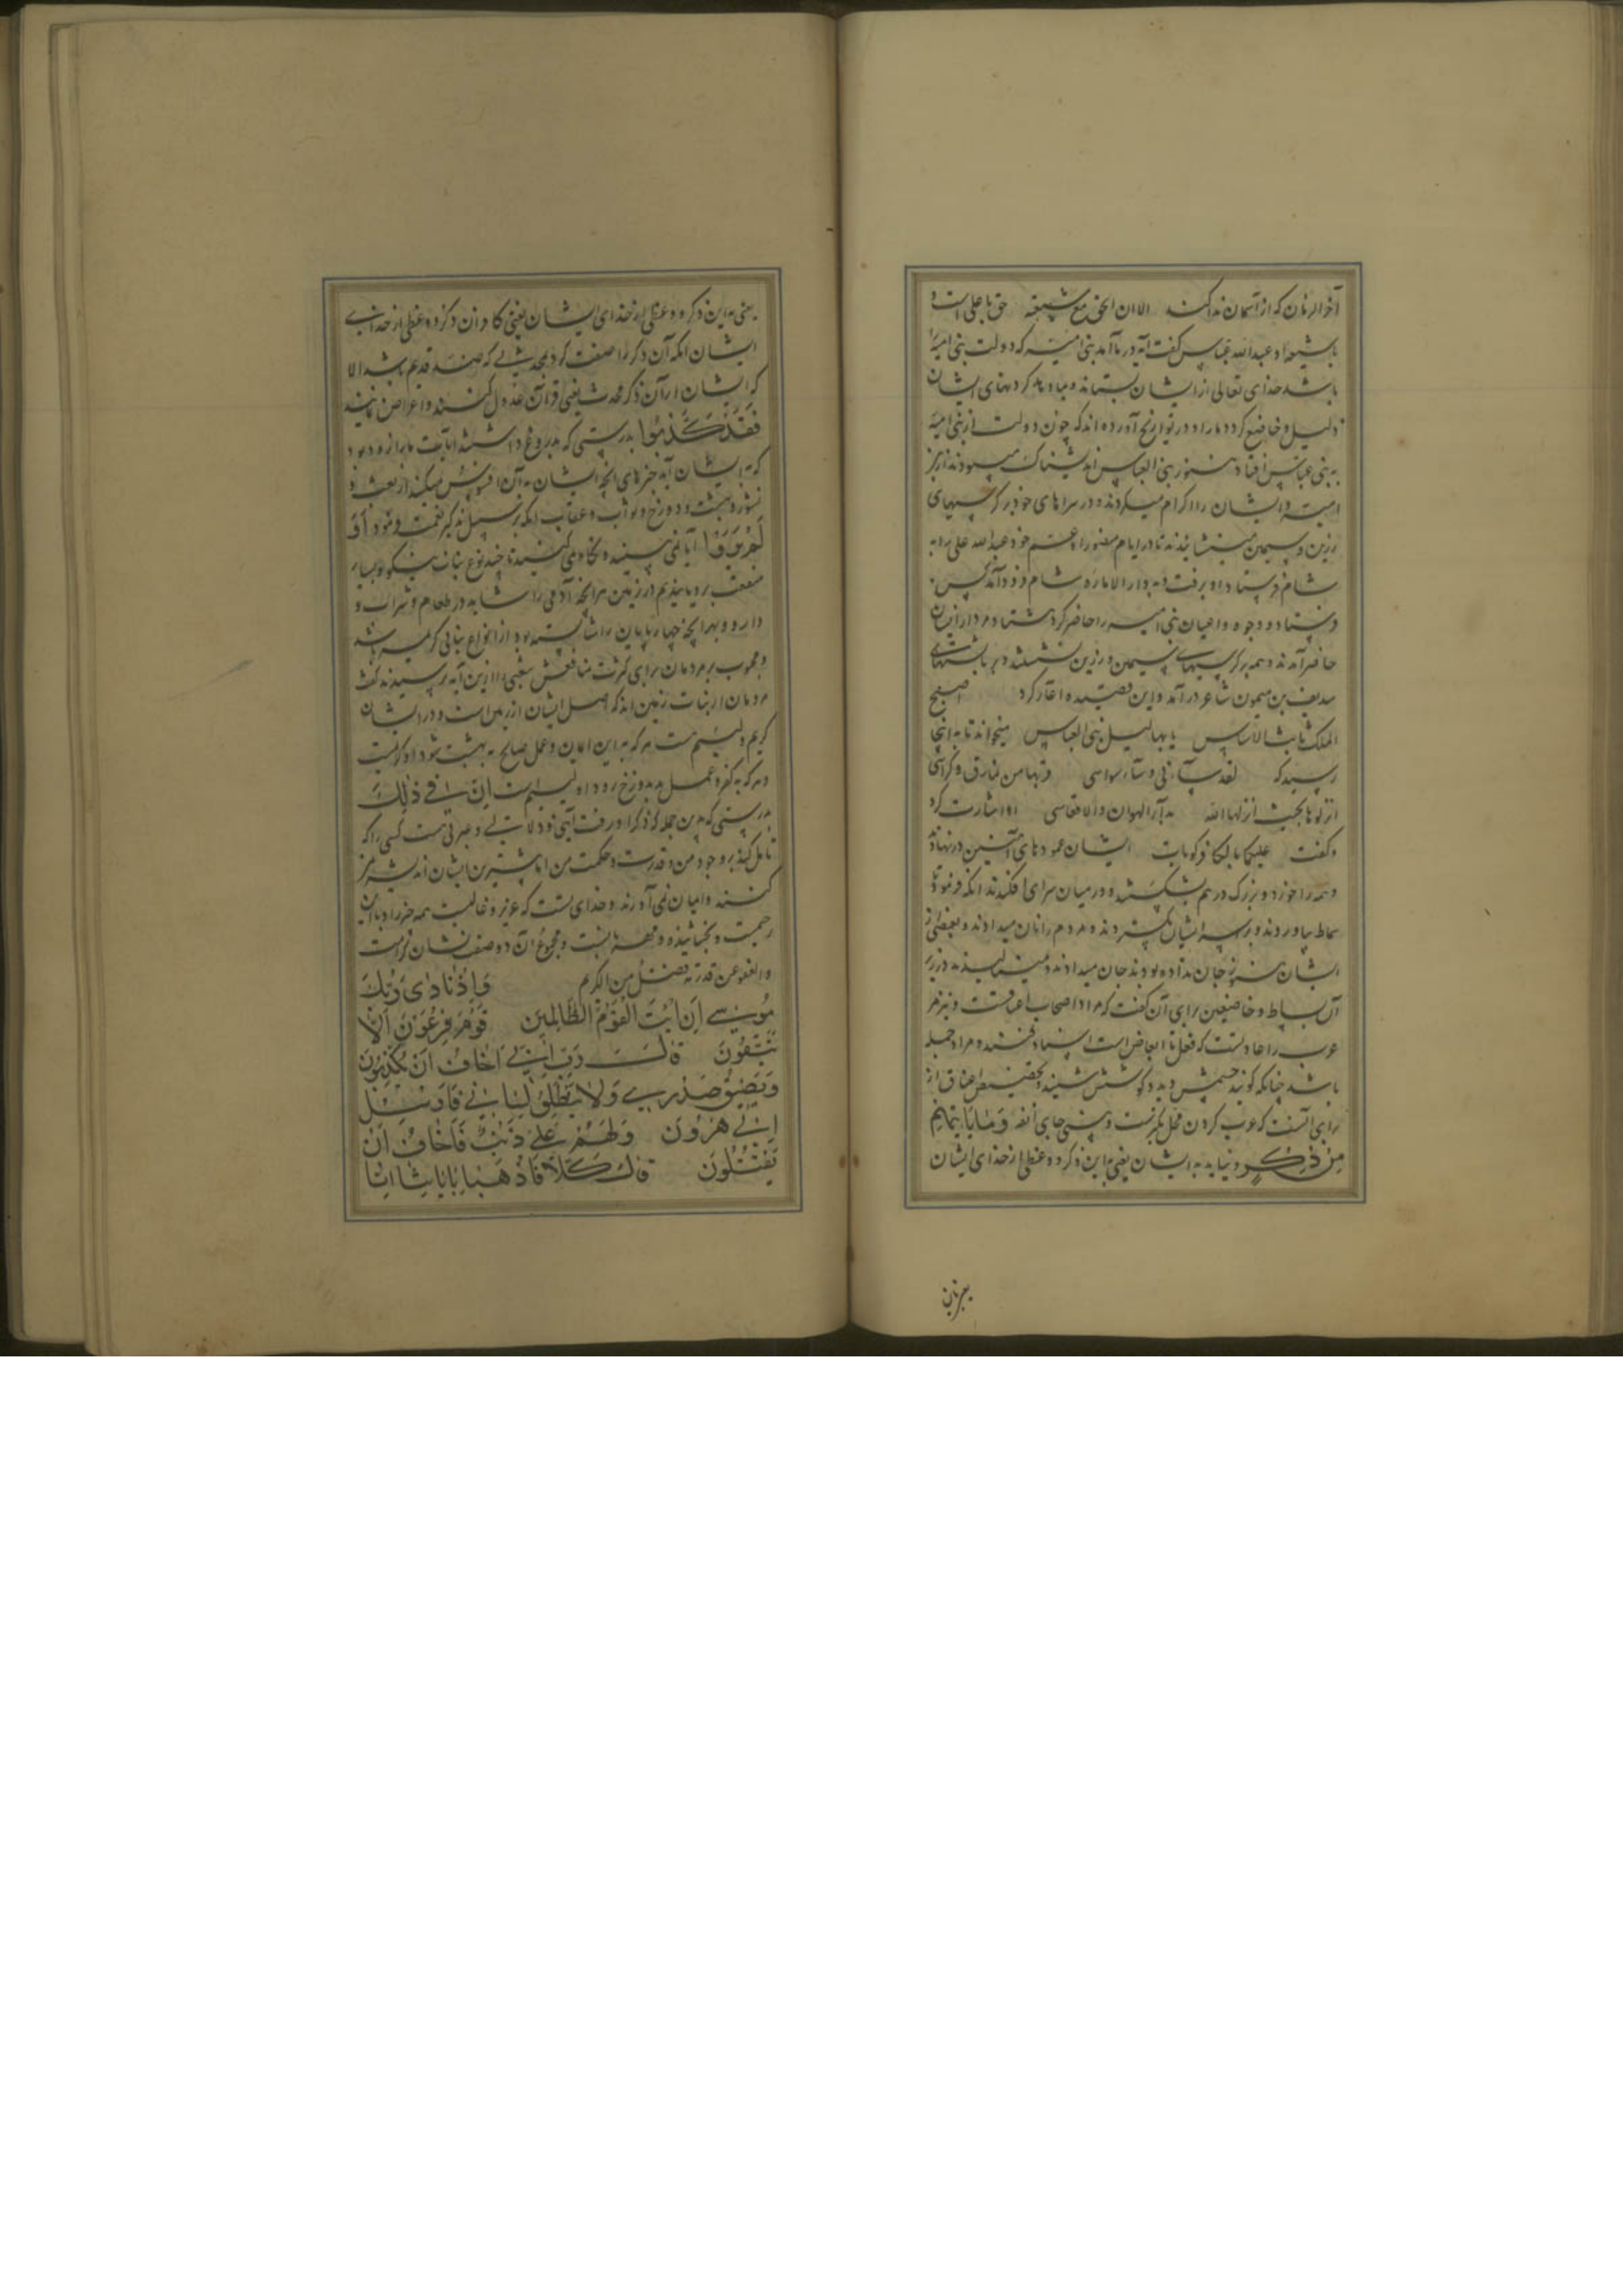 آخر الزمان که از آسمان ندا کنند الا ان الحق مع علی و شیعته حق با علی است و
با شیعه او عبدالله عباس گفت آیه در ما آمد بنی امیه که دولت بنی امیه
باشد خدای تعالی از ایشان بستاند و بما دهد کردنهای ایشان
ذلیل و خاضع کردد ما را و در تواریخ آورده اند که چون دولت از بنی امیه
به بنی عباس افتاد هنوز بنی العباس اندیشناک میبودند از بنی
امیه و ایشان را اکرام میکردند و در سراهای خود بر کرسیهای
زرین و سیمین مینشاندند تا در ایام منصور او عم خود عبدالله علی را به
شام فرستاد او برفت و به دار الاماره شام فرود آمد کس
فرستاد و وجوه و اعیان بنی امیه را حاضر کرد هشتاد مرد از ایشان
حاضر آمدند و همه بر کرسیهای سیمین و زرین نشستند و بر بالشتهای
سدیف بن میمون شاعر درآمد و این قصیده آغاز کرد اصبح
الملک ثابت الاساس بالبهالیل بنی العباس میخواند تا به اینجا
رسید که لقد
انزلوها بحیث انزلها الله بدار الهوان والاتعاس او اشارت کرد
و کفت ایشان عمودهای آهنین در نهادند
و همه را خورد و بزرک در هم بشکستند و در میان سرای افکندند آنکه فرمود تا
سماط بیاوردند و بر سر ایشان بکستردند و مردم را نان میدادند و بعضی از
ایشان هنوز جان نداده بودند جان میدادند و مینالیدند در زیر
آن بساط و خاضعین برای آن کفت که مراد اصحاب اعناقست و نیز مر
عرب را عادتست که فعل با ابعاض است اسناد کنند و مراد جمله
باشد چنانکه کویند چشمش دید و کوشش شنید و تخصیص اعناق از
برای آنست که عرب کردن محل تکبر نهست و بینی جای انفه وَمَا یَأتِیهِم
مِن ذِکرٍ و نیاید به ایشان یعنی به این ذکر و وعظی از خدای ایشان
بعنی این
یعنی به این ذکر و وعظی از خدای ایشان یعنی کافران ذکر و وعظی از خدای
ایشان آنکه آن ذکر را صفت کرد بمحدثی که ضد قدیم باشد الا
که ایشان از آن ذکر محدث یعنی قرآن عدول کنند و اعراض نمایند
فَقَد کَذَّبُوا بدرستی که بدروغ داشتند آیات ما را زود بود
که به ایشان آید خبرهای آنچه ایشان به آن افسوس میکنند از بعث و
نشور و بهشت و دوزخ و ثواب و عقاب آنکه بر سبیل تذکیر نعمت فرمود اَوَ
لَم یَرَوا آیا نمی بینید و نکاه نمی کنید تا چند نوع نبات نیکو و بسیار
منفعت برویانیدیم در زمین هر آنچه آدمی را شاید در طعام و شراب و
دارو و بهر آنچه چهارپایان را شایسته بود از انواع نباتی کریم باشد
و محبوب بر مردمان برای کثرت منافعش شعبی را از این آیه پرسیدند کفت
مردمان از نبات زمین اند که اصل ایشان از زمین است و در ایشان
کریم و لئیم هست هر که به این ایمان و عمل صالح به بهشت شود او کریمست
و هر که به کفر و عمل بد بدوزخ رود او لئیم است اِنَّ فِی ذٰلِکَ
بدرستی که در این جمله که ذکر او رفت آیتی بود و دلالتی و عبرتی هست کسی را که
تامل کند بر وجود من و قدرت و حکمت من اما بیشترین ایشان اندیشه نمی
کنند و ایمان نمی آورند و خدای تست که عزیز و غالبست همه چیز را و با این
رحیمست و بخشاینده و مهربانست و مجموع آن دو صفت نشان کرمست
و العفو عن قدرة فضل من الکرم وَاِذ نَادٰی رَبُّکَ
مُوسٰی اَنِ ائتِ القَومَ الظَّالِمِینَ قَومَ فِرعَونَ اَلَا
یَتَّقُونَ قَالَ رَبِّ اِنِّی اَخَافُ اَن یُکَذِّبُونِ
وَیَضِیقُ صَدرِی وَلَا یَنطَلِقُ لِسَانِی فَاَرسِل
اِلٰی هٰرُونَ وَلَهُم عَلَیَّ ذَنبٌ فَاَخَافُ اَن
یَقتُلُونِ قَالَ کَلَّا فَاذهَبَا بِاٰیَاتِنَا اِنَّا